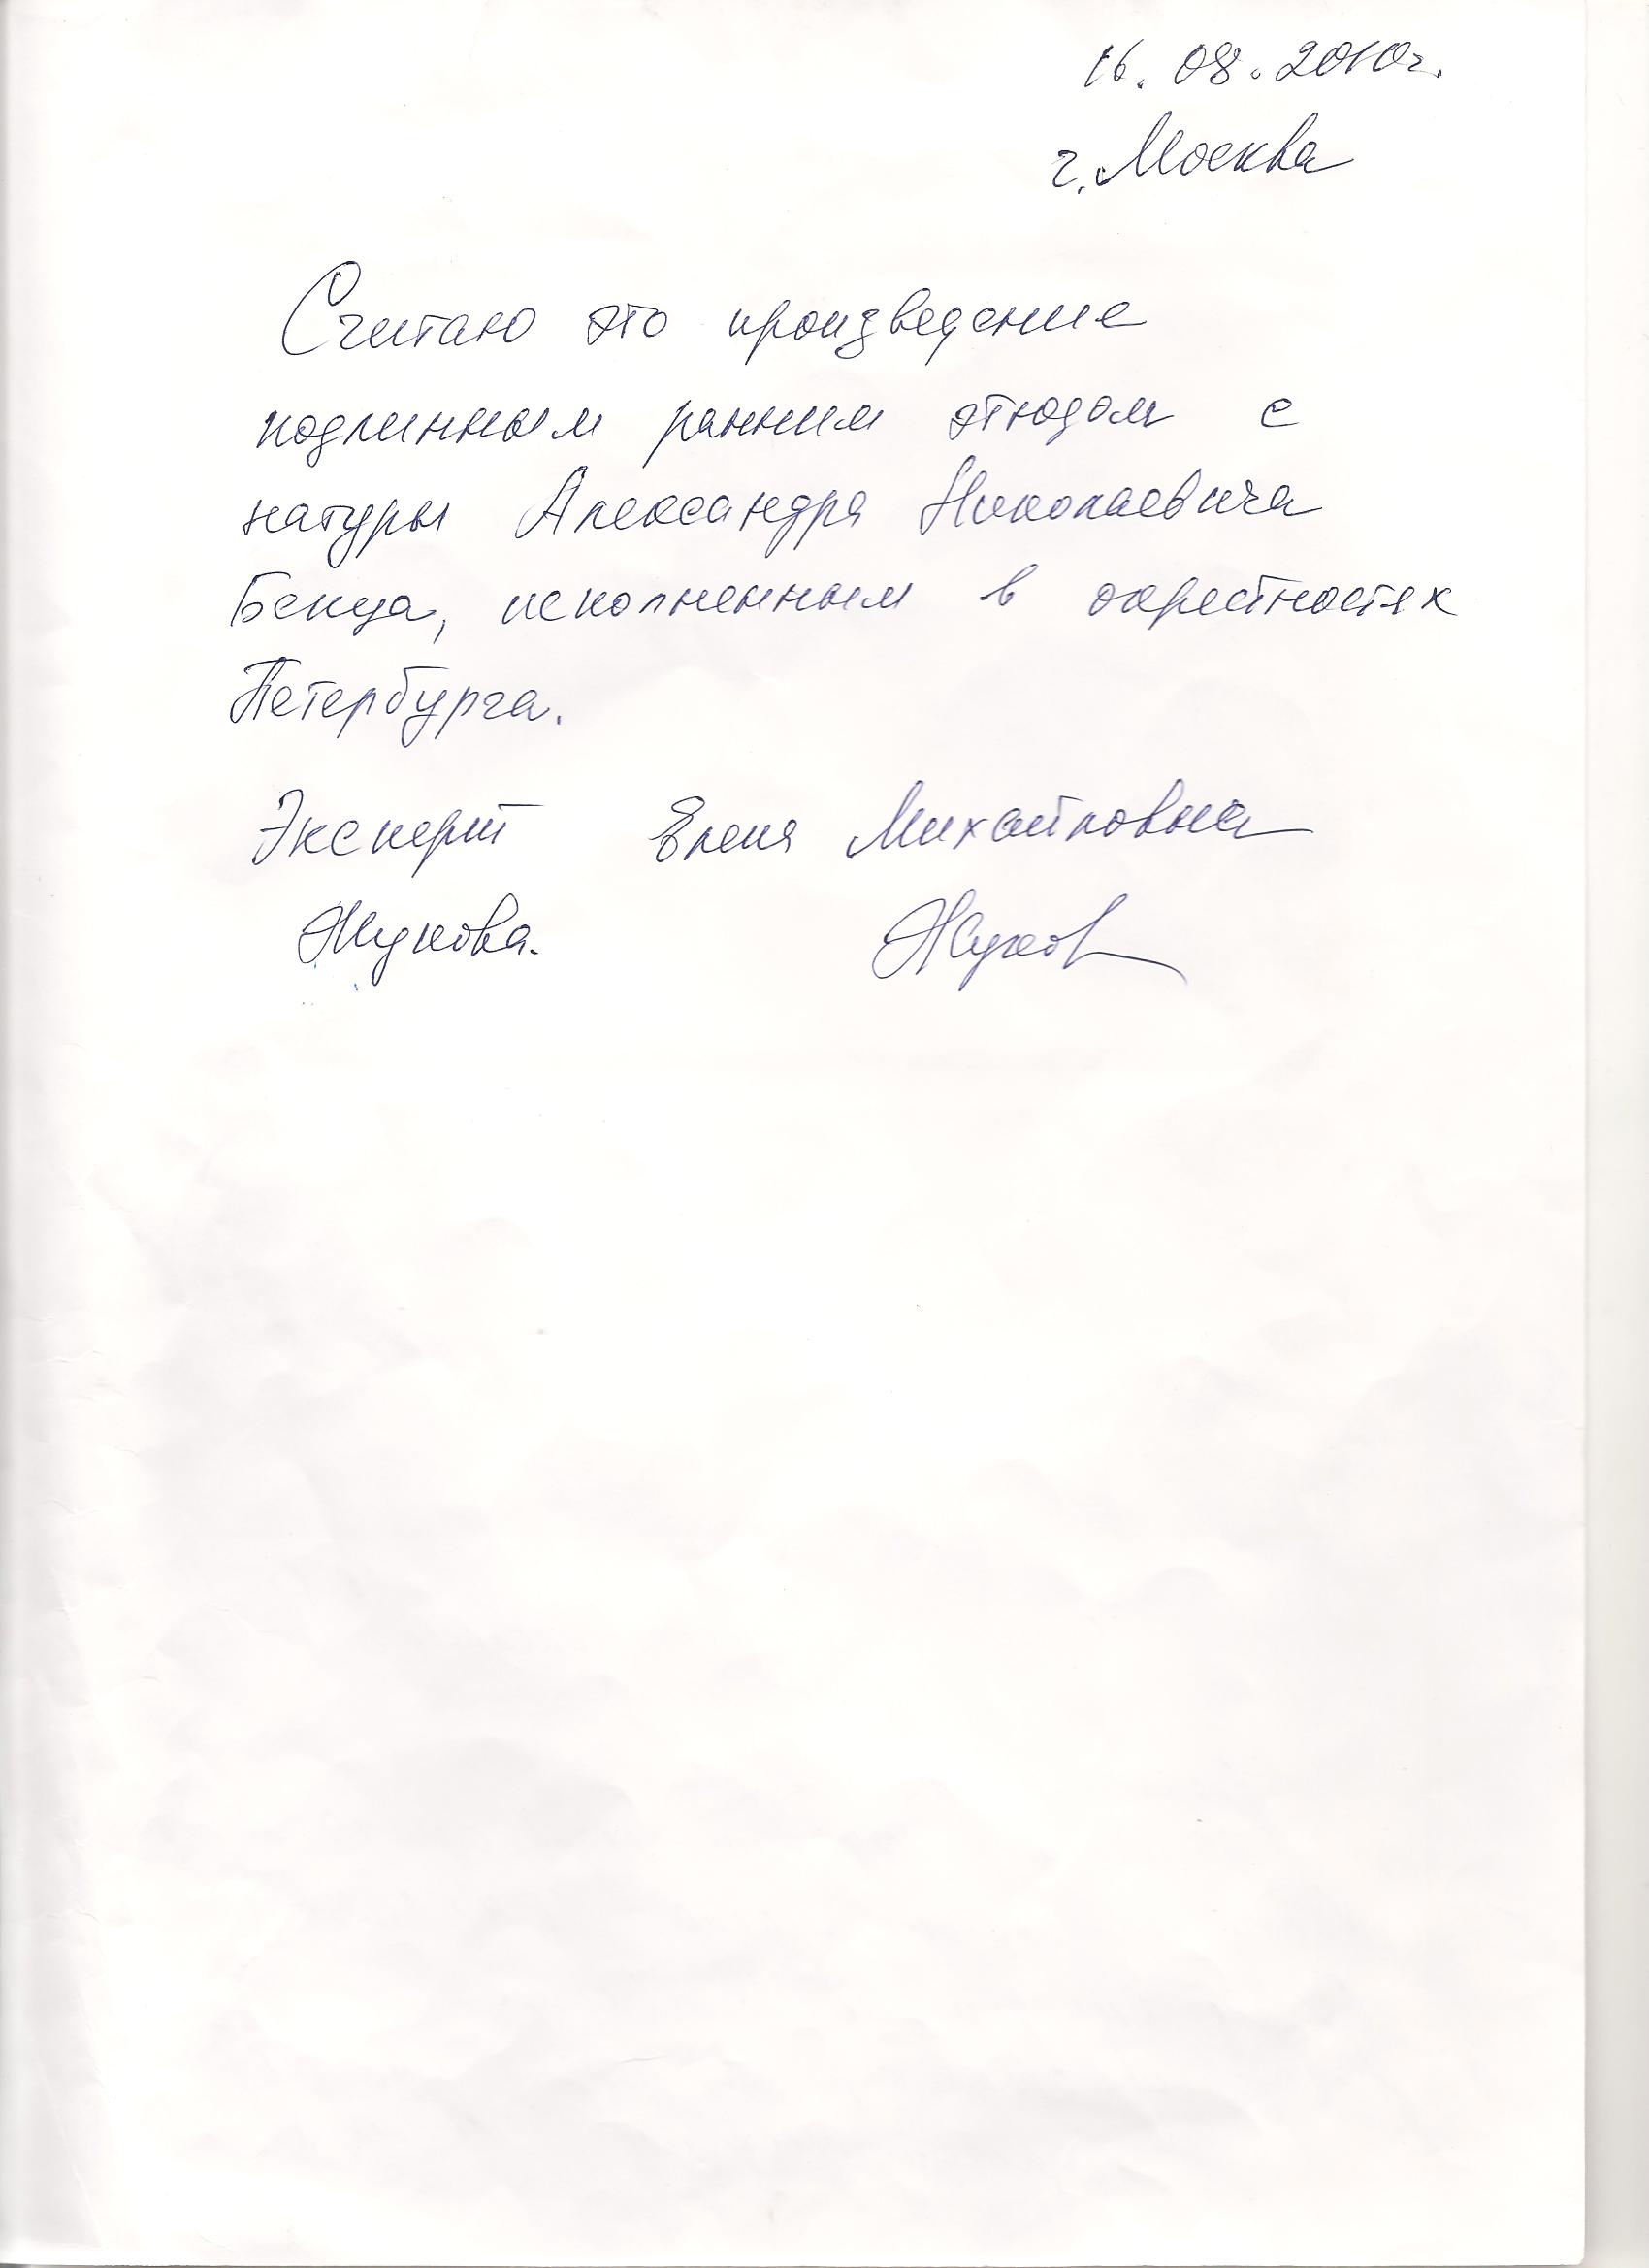 16.08.2010г.
г. Москва
Считаю это произведение
подлинным ранним этюдом с
натуры Александра Николаевича
Бенуа, исполненным в окрестностях
Петербурга.
Эксперт Елена Михайловна
Жукова. Жуков